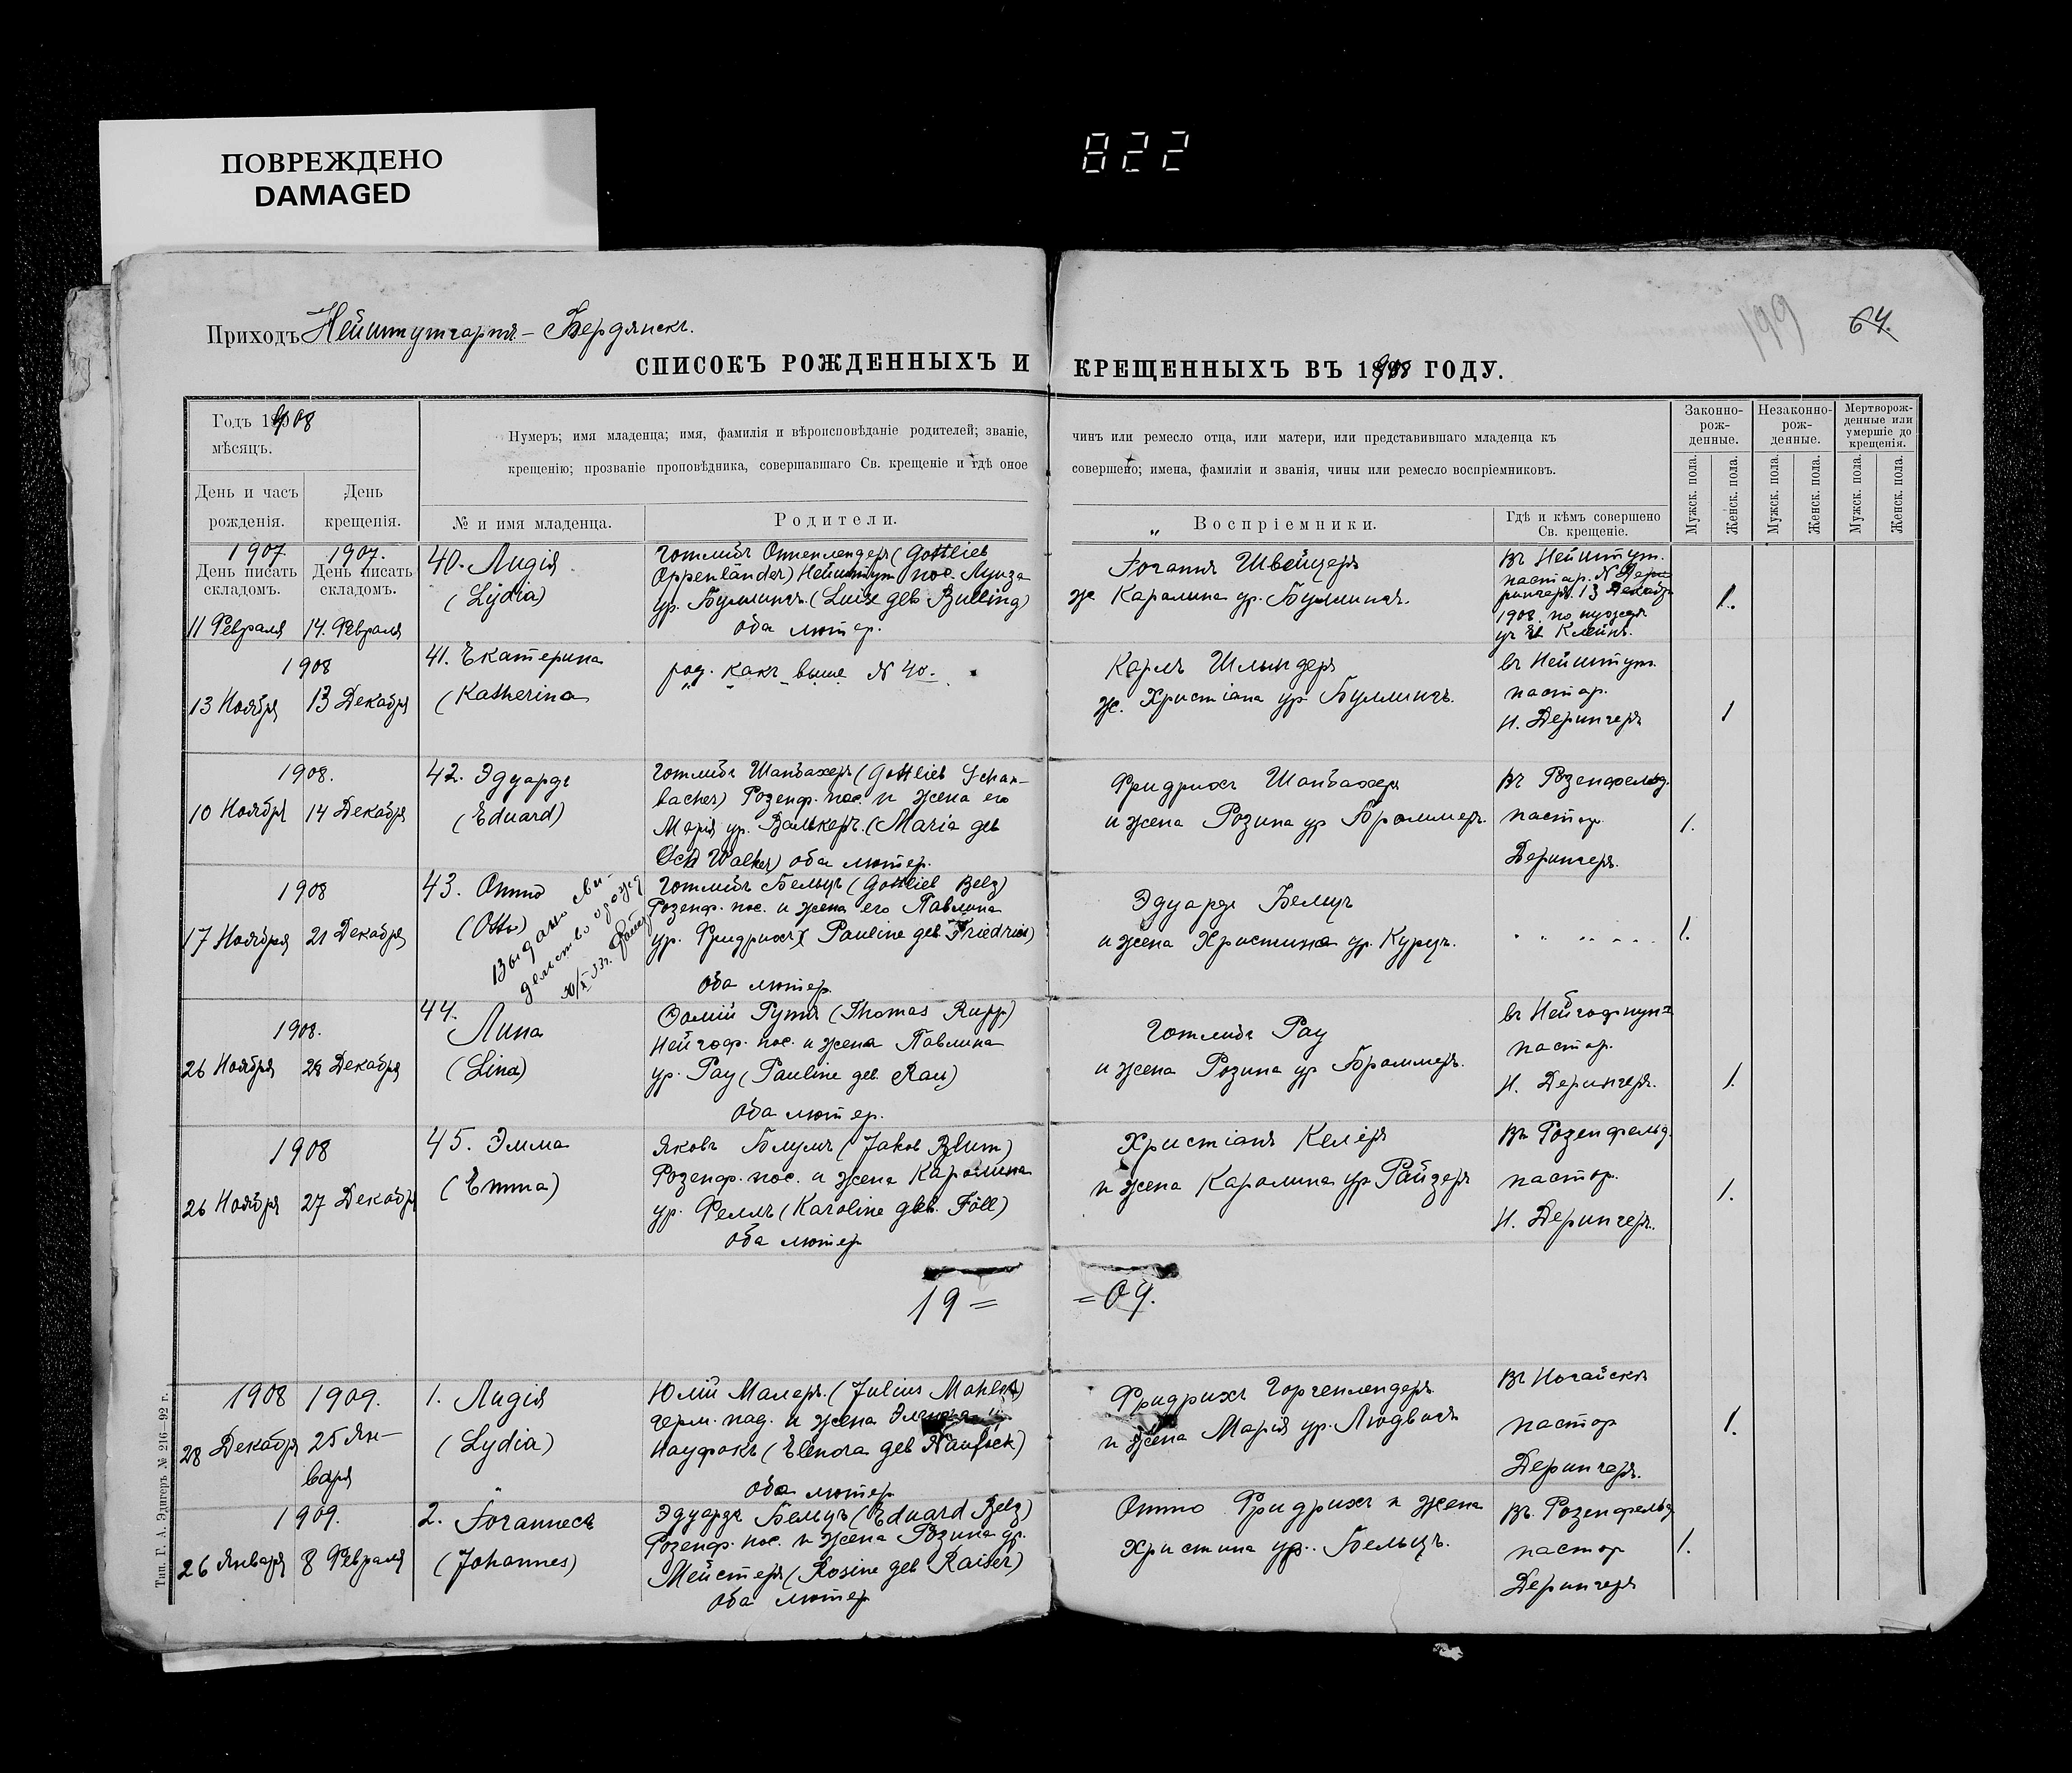 ПОВРЕЖДЕНО
DAMAGED
822
199
64.
Приходъ Нейштутгартъ - Бердянскъ.
СПИСОКЪ РОЖДЕННЫХЪ И КРЕЩЕННЫХЪ ВЪ 1908 ГОДУ.
Годъ 1908
мѣсяцъ.
День и часъ
рожденія.
День
крещенія.
Нумеръ; имя младенца; имя, фамилія и вѣроисповѣданіе родителей; званіе,
чинъ или ремесло отца, или матери, или представившаго младенца къ
крещенію; прозваніе проповѣдника, совершавшаго Св. крещеніе и гдѣ оное
совершено; имена, фамиліи и званія, чины или ремесло воспріемниковъ.
№ и имя младенца.
Родители.
„ Воспріемники.
Гдѣ и кѣмъ совершено
Св. крещеніе.
Законно-
рож-
денные.
Незаконно-
рож-
денные.
Мертворож-
денные или
умершіе до
крещенія.
Мужск. пола.
Женск. пола.
Мужск. пола.
Женск. пола.
Мужск. пола.
Женск. пола.
1907
День писать
складомъ.
11 Февраля
1907.
День писать
складомъ.
14. Февраля
40. Лидія
(Lydia)
Готлибъ Оппенлендеръ (Gottlieb
Oppenländer) Нейштут. пос. Луиза
ур. Буллингъ. (Luise geb Bulling)
оба лютер.
Іоганнъ Швейцеръ
ж Каролина ур. Буллингъ.
въ Нейштут.
пастор. N Дери
рингеръ. 13 Декабр
1908. по нуждѣ
уч Клейнъ.
1.
1908
13 Ноября
13 Декабря
41. Екатерина
(Katherina
род. какъ выше N 40.
Карлъ Шлындеръ
ж. Христіана ур Буллингъ.
въ Нейштут.
пастор.
И. Дерингеръ
1
1908.
10 Ноября
14 Декабря
42. Эдуардъ
(Eduard)
Готлибъ Шанбахеръ (Gottlieb Schan-
bacher) Розенф. пос. и жена его
Марія ур. Валькеръ. (Maria geb
Walker) оба лютер.
Фридрихъ Шанбахеръ
и жена Розина ур Броммеръ.
въ Розенфельд.
пастор.
Дерингеръ.
1.
1908
17 Ноября
21 Декабря
43. Отто
(Otto)
Выдано сви-
дельство о рожд
30/X 33 г.
Готлибъ Бельцъ (Gottlieb Belz)
Розенф. пос. и жена его Павлина
ур. Фридрихъ (Pauline geb. Friedrich)
оба лютер.
Эдуардъ Бельцъ
и жена Христина ур. Курцъ.
" " " " " "
1.
1908.
26 Ноября
28 Декабря
44.
Лина
(Lina)
Ѳомій Руппъ (Thomas Rupp)
Нейгоф. пос. и жена Павлина
ур. Рау (Pauline geb. Rau)
оба лютер.
Готлибъ Рау
и жена Розина ур Броммеръ.
въ Нейгофнун=
пастор.
И. Дерингеръ.
1.
1908
26 Ноября
27 Декабря
45. Эмма
(Emma)
Яковъ Блумъ (Jakob Blum)
Розенф. пос. и жена Каролина
ур. Феллъ (Karoline geb. Föll)
оба лютер
Христіанъ Келеръ
и жена Каролина ур Райзеръ
въ Розенфельд.
пастор.
И. Дерингеръ.
1.
19 = = 09.
1908
28 Декабря
1909.
25 Ян-
варя
1. Лидія
(Lydia)
Юлій Малеръ. (Julius Mahler)
герм. под. и жена
Науфокъ (Elenora geb Naufock)
оба лютер
Фридрихъ Горгенлендеръ
и жена Марія ур. Людвигъ
въ Ногайскѣ
пастор
Дерингеръ.
1.
1909.
26 Января
8 Февраля
2. Іоганнесъ
(Johannes)
Эдуардъ Бельцъ (Eduard Belz)
Розенф. пос. и жена Розина ур.
Мейстеръ (Rosine geb Raiser)
оба лютер
Отто Фридрихъ и жена
Христина ур. Бельцъ.
въ Розенфельд
пастор
Дерингеръ
1.
Тип. Г. А. Эдигеръ № 216—92 г.